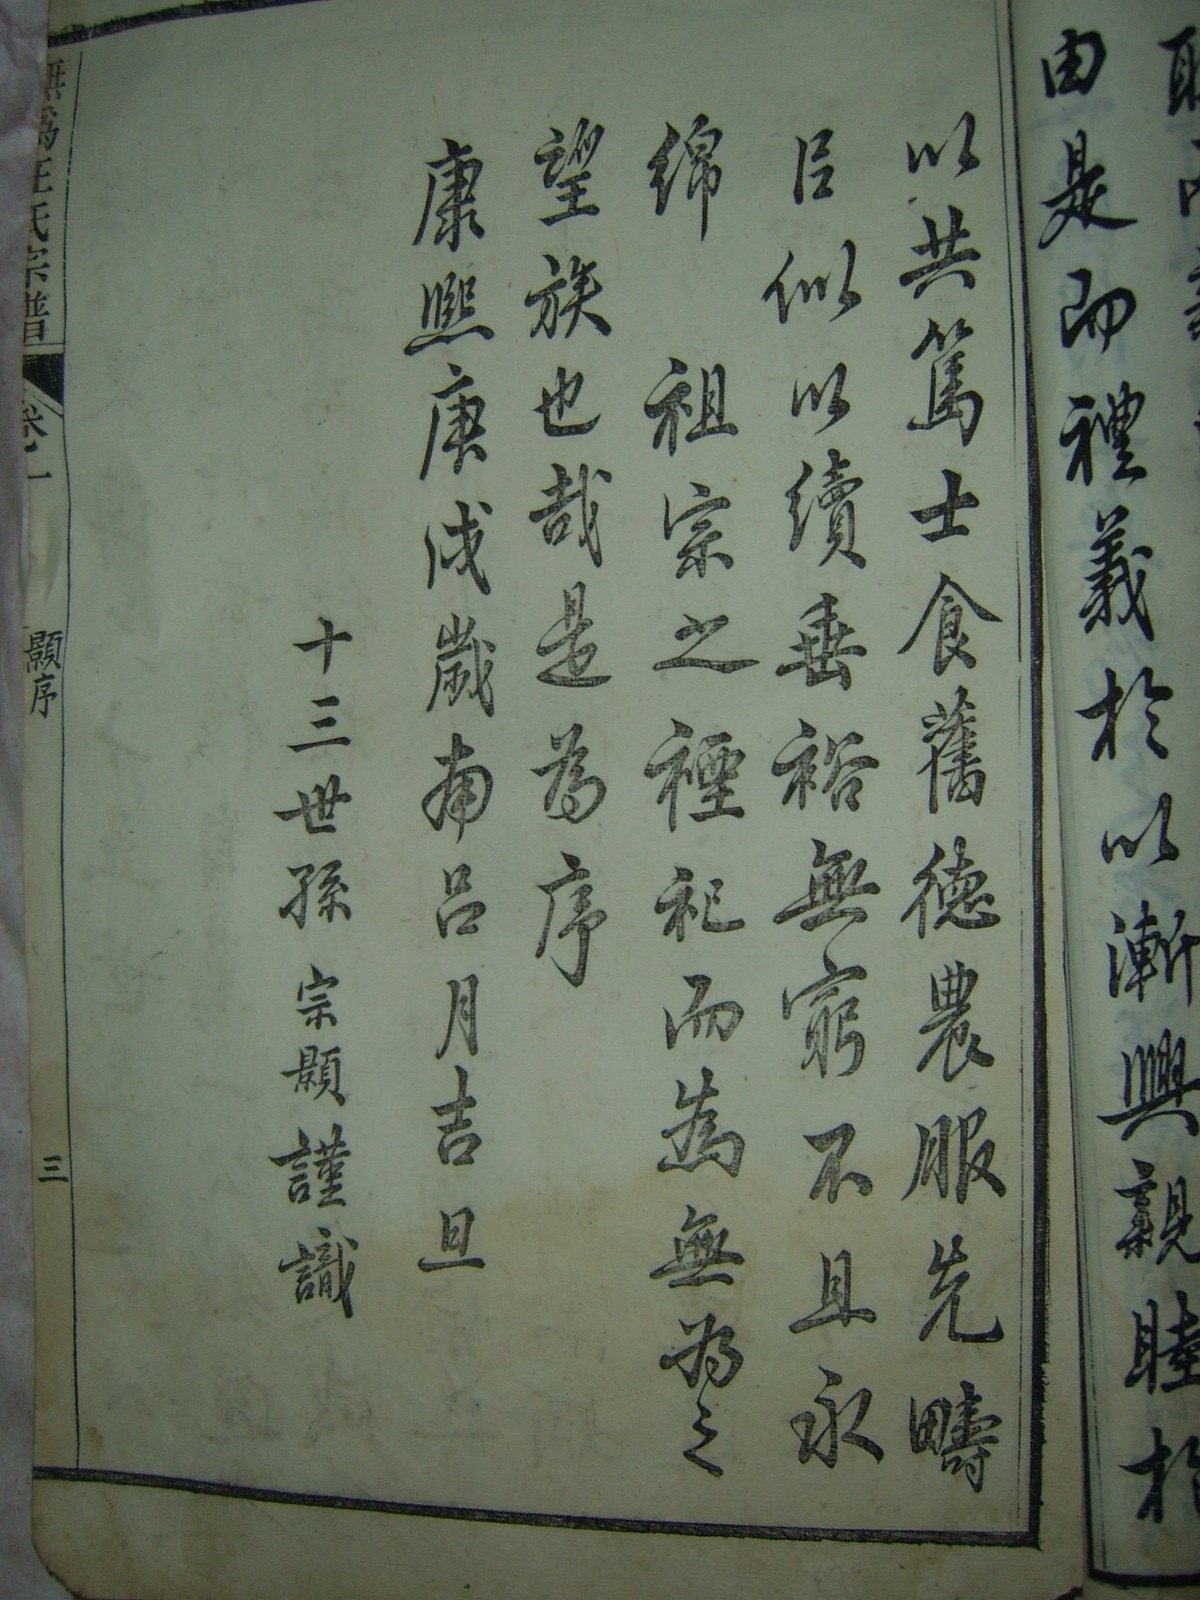 由是而禮義於以漸興親睦於
以共篤士食舊德農服先疇
㠯似以續垂裕無窮不且永
綿 祖宗之禋祀而為無為之
望族也哉是為序
康熙庚戌歲南呂月吉旦
十三世孫 宗顯 謹識
無為汪氏宗譜 卷一 顯序 三